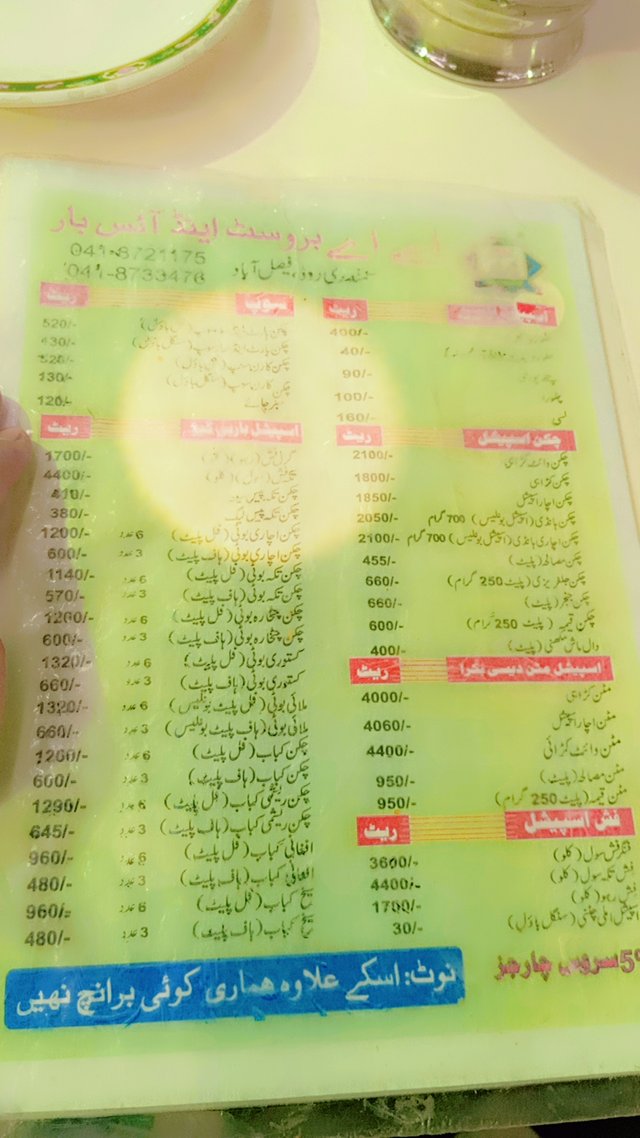 اے اے بروسٹ اینڈ آئس بار
041-8721175
041-8733476
سمندری روڈ، فیصل آباد
ریٹ
400/-
40/-
90/-
100/-
لسی 160/-
چکن اسپیشل ریٹ
چکن وائٹ کڑاہی 2100/-
چکن کڑاہی 1800/-
چکن اچار اسپیشل 1850/-
چکن ہانڈی (اسپیشل بونلیس) 700 گرام 2050/-
چکن اچاری ہانڈی (اسپیشل بونلیس) 700 گرام 2100/-
چکن مصالحہ (پلیٹ) 455/-
چکن جلفریزی (پلیٹ 250 گرام) 660/-
چکن جنجر (پلیٹ) 660/-
چکن قیمہ (پلیٹ 250 گرام) 600/-
دال ماش مکھنی (پلیٹ) 400/-
اسپیشل مٹن دیسی بکرا ریٹ
مٹن کڑاہی 4000/-
مٹن اچار اسپیشل 4060/-
مٹن وائٹ کڑائی 4400/-
مٹن مصالحہ (پلیٹ) 950/-
مٹن قیمہ (پلیٹ 250 گرام) 950/-
فش اسپیشل ریٹ
فنگر فش سول (کلو) 3600/-
فش تکہ سول (کلو) 4400/-
فش رہو (کلو) 1700/-
اسپیشل املی چٹنی (سنگل باؤل) 30/-
5% سروس چارجز
سوپ ریٹ
520/-
130/-
چکن کارن سوپ
چکن کارن سوپ (سنگل باؤل) 130/-
120/-
اسپیشل باربی کیو ریٹ
1700/-
4400/-
چکن تکہ پیس 410/-
چکن تکہ پیس لیگ 380/-
چکن اچاری بوٹی (فل پلیٹ) 6 عدد 1200/-
چکن اچاری بوٹی (ہاف پلیٹ) 3 عدد 600/-
چکن تکہ بوٹی (فل پلیٹ) 6 عدد 1140/-
چکن تکہ بوٹی (ہاف پلیٹ) 3 عدد 570/-
چکن چٹخارہ بوٹی (فل پلیٹ) 6 عدد 1200/-
چکن چٹخارہ بوٹی (ہاف پلیٹ) 3 عدد 600/-
کستوری بوٹی (فل پلیٹ) 6 عدد 1320/-
کستوری بوٹی (ہاف پلیٹ) 3 عدد 660/-
ملائی بوٹی (فل پلیٹ بونلیس) 6 عدد 1320/-
ملائی بوٹی (ہاف پلیٹ بونلیس) 3 عدد 660/-
چکن کباب (فل پلیٹ) 6 عدد 1200/-
چکن کباب (ہاف پلیٹ) 3 عدد 600/-
چکن ریشمی کباب (فل پلیٹ) 6 عدد 1290/-
چکن ریشمی کباب (ہاف پلیٹ) 3 عدد 645/-
افغانی کباب (فل پلیٹ) 6 عدد 960/-
افغانی کباب (ہاف پلیٹ) 3 عدد 480/-
سیخ کباب (فل پلیٹ) 6 عدد 960/-
سیخ کباب (ہاف پلیٹ) 3 عدد 480/-
نوٹ: اسکے علاوہ ھماری کوئی برانچ نھیں